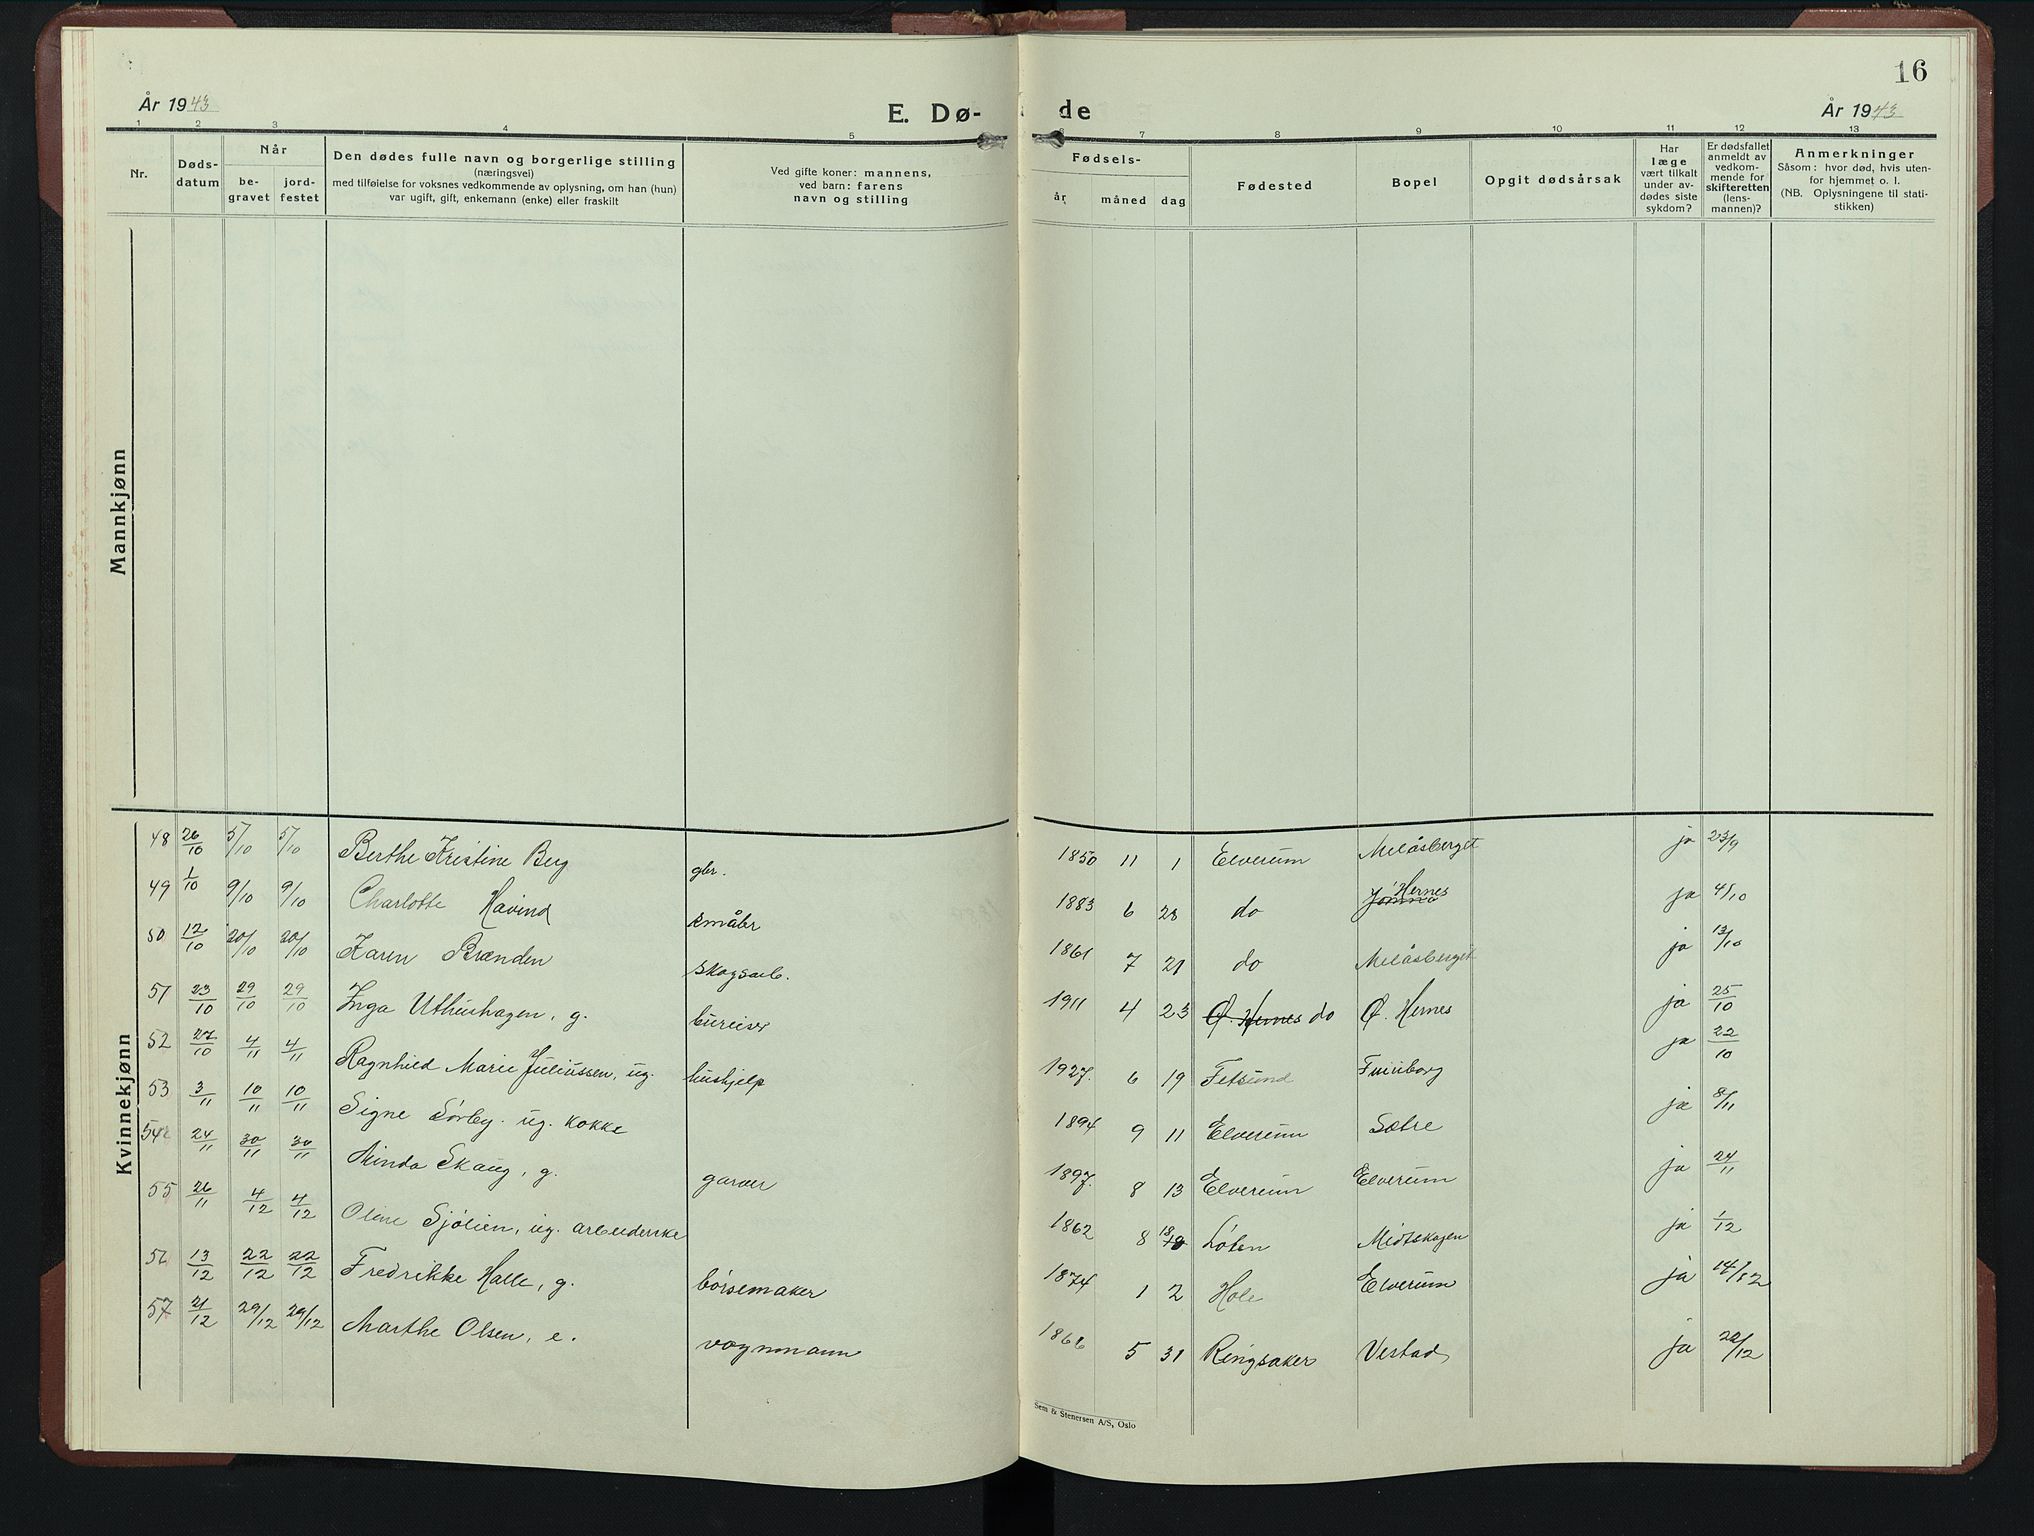 16
År 1943
E. Dø- de
År 1943
1 2 3 4 5 6 7 8 9 10 11 12 13
Nr.
Døds-datum
Når
be-gravet
jord-festet
Den dødes fulle navn og borgerlige stilling
(næringsvei)
med tilføielse for voksnes vedkommende av oplysning, om han (hun)
var ugift, gift, enkemann (enke) eller fraskilt
Ved gifte koner: mannens,
ved barn: farens
navn og stilling
Fødsels-
år måned dag
Fødested
Bopel
Opgit dødsårsak
Har
læge
vært tilkalt
under av-
dødes siste
sykdom?
Er dødsfallet
anmeldt av
vedkom-
mende for
skifteretten
(lens-
mannen)?
Anmerkninger
Såsom: hvor død, hvis uten-
for hjemmet o. l.
(NB. Oplysningene til stati-
stikken)
Mannkjønn
Kvinnekjønn
48 26/10 5/10 5/10 Berthe Kristine Berg gbr. 1850 11 1 Elverum Melåsberget ja 23/9
49 1/10 9/10 9/10 Charlotte Havind småbr 1883 6 28 do Hernes ja 4/10
50 12/10 20/10 20/10 Karen Brænden skogsarb. 1861 7 21 do Melåsberget ja 13/10
51 23/10 29/10 29/10 Inga Uthushagen, g. bureiser 1911 4 23 Ø. Hernes do Ø. Hernes ja 25/10
52 27/10 4/11 4/11 Ragnhild Marie Juliussen, ug. hushjelp 1927. 6 19 Fetsund ja 22/10
53 3/11 10/11 10/11 Signe Sørby. ug. kokke 1894 9 11 Elverum Sætre ja 8/11
54 24/11 30/11 30/11 Minda Skaug, g. garver 1897. 8 13 Elverum Elverum ja 24/11
55 26/11 4/12 4/12 Oline Sjølien, ug. arbeiderske 1862 8 18 Løten Midtskogen ja 1/12
56 13/12 22/12 22/12 Fredrikke Halle, g. børsemaker 1874 1 2 Hole Elverum ja 14/12
57 21/12 29/12 29/12 Marthe Olsen, e. vognmann 1866 5 31 Ringsaker Vestad ja 22/12
Sem & Stenersen A/S, Oslo